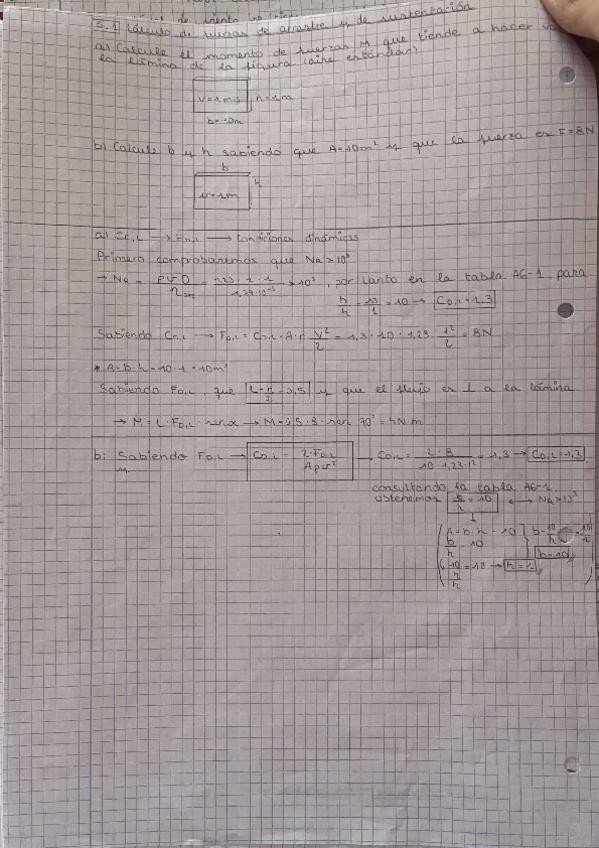 5.1 Cálculo de fuerzas de arrastre y de sustentación
a) Calcule el momento de fuerzas M que tiende a hacer
la lámina de la figura (aire estándar)
v=1m/s h=1m
b=10m
b) Calcule b y h sabiendo que A=10m² y que la fuerza es F=8N
b
h
a) CD,L → FD,L → Condiciones dinámicas
Primero comprobaremos que NR>10³
→ NR = ρVD = 1.23·1·1 >10³, por tanto en la tabla A6-1, para
b/h = 10/1 = 10 → CD,L=1,3
Sabiendo CD,L → FD,L = CD,L·A·ρ V²/2 = 1,3·10·1,23·1²/2 = 8N
* A=b·h=10·1=10m²
Sabiendo FD,L, que L=h/2=0,5 y que el flujo es ⊥ a la lámina
→ M=L·FD,L·senα → M=0,5·8·sen 90° = 4N·m
b) Sabiendo FD,L → CD,L = 2·FD,L/Aρv² → CD,L = 2·8/10·1,23·1² = 1,3 → CD,L=1,3
y
consultando la tabla A6-1,
obtenemos b/h = 10 → NR>10³
A=b·h=10 b=10/h
b/h=10 h=10
=10 → h=1